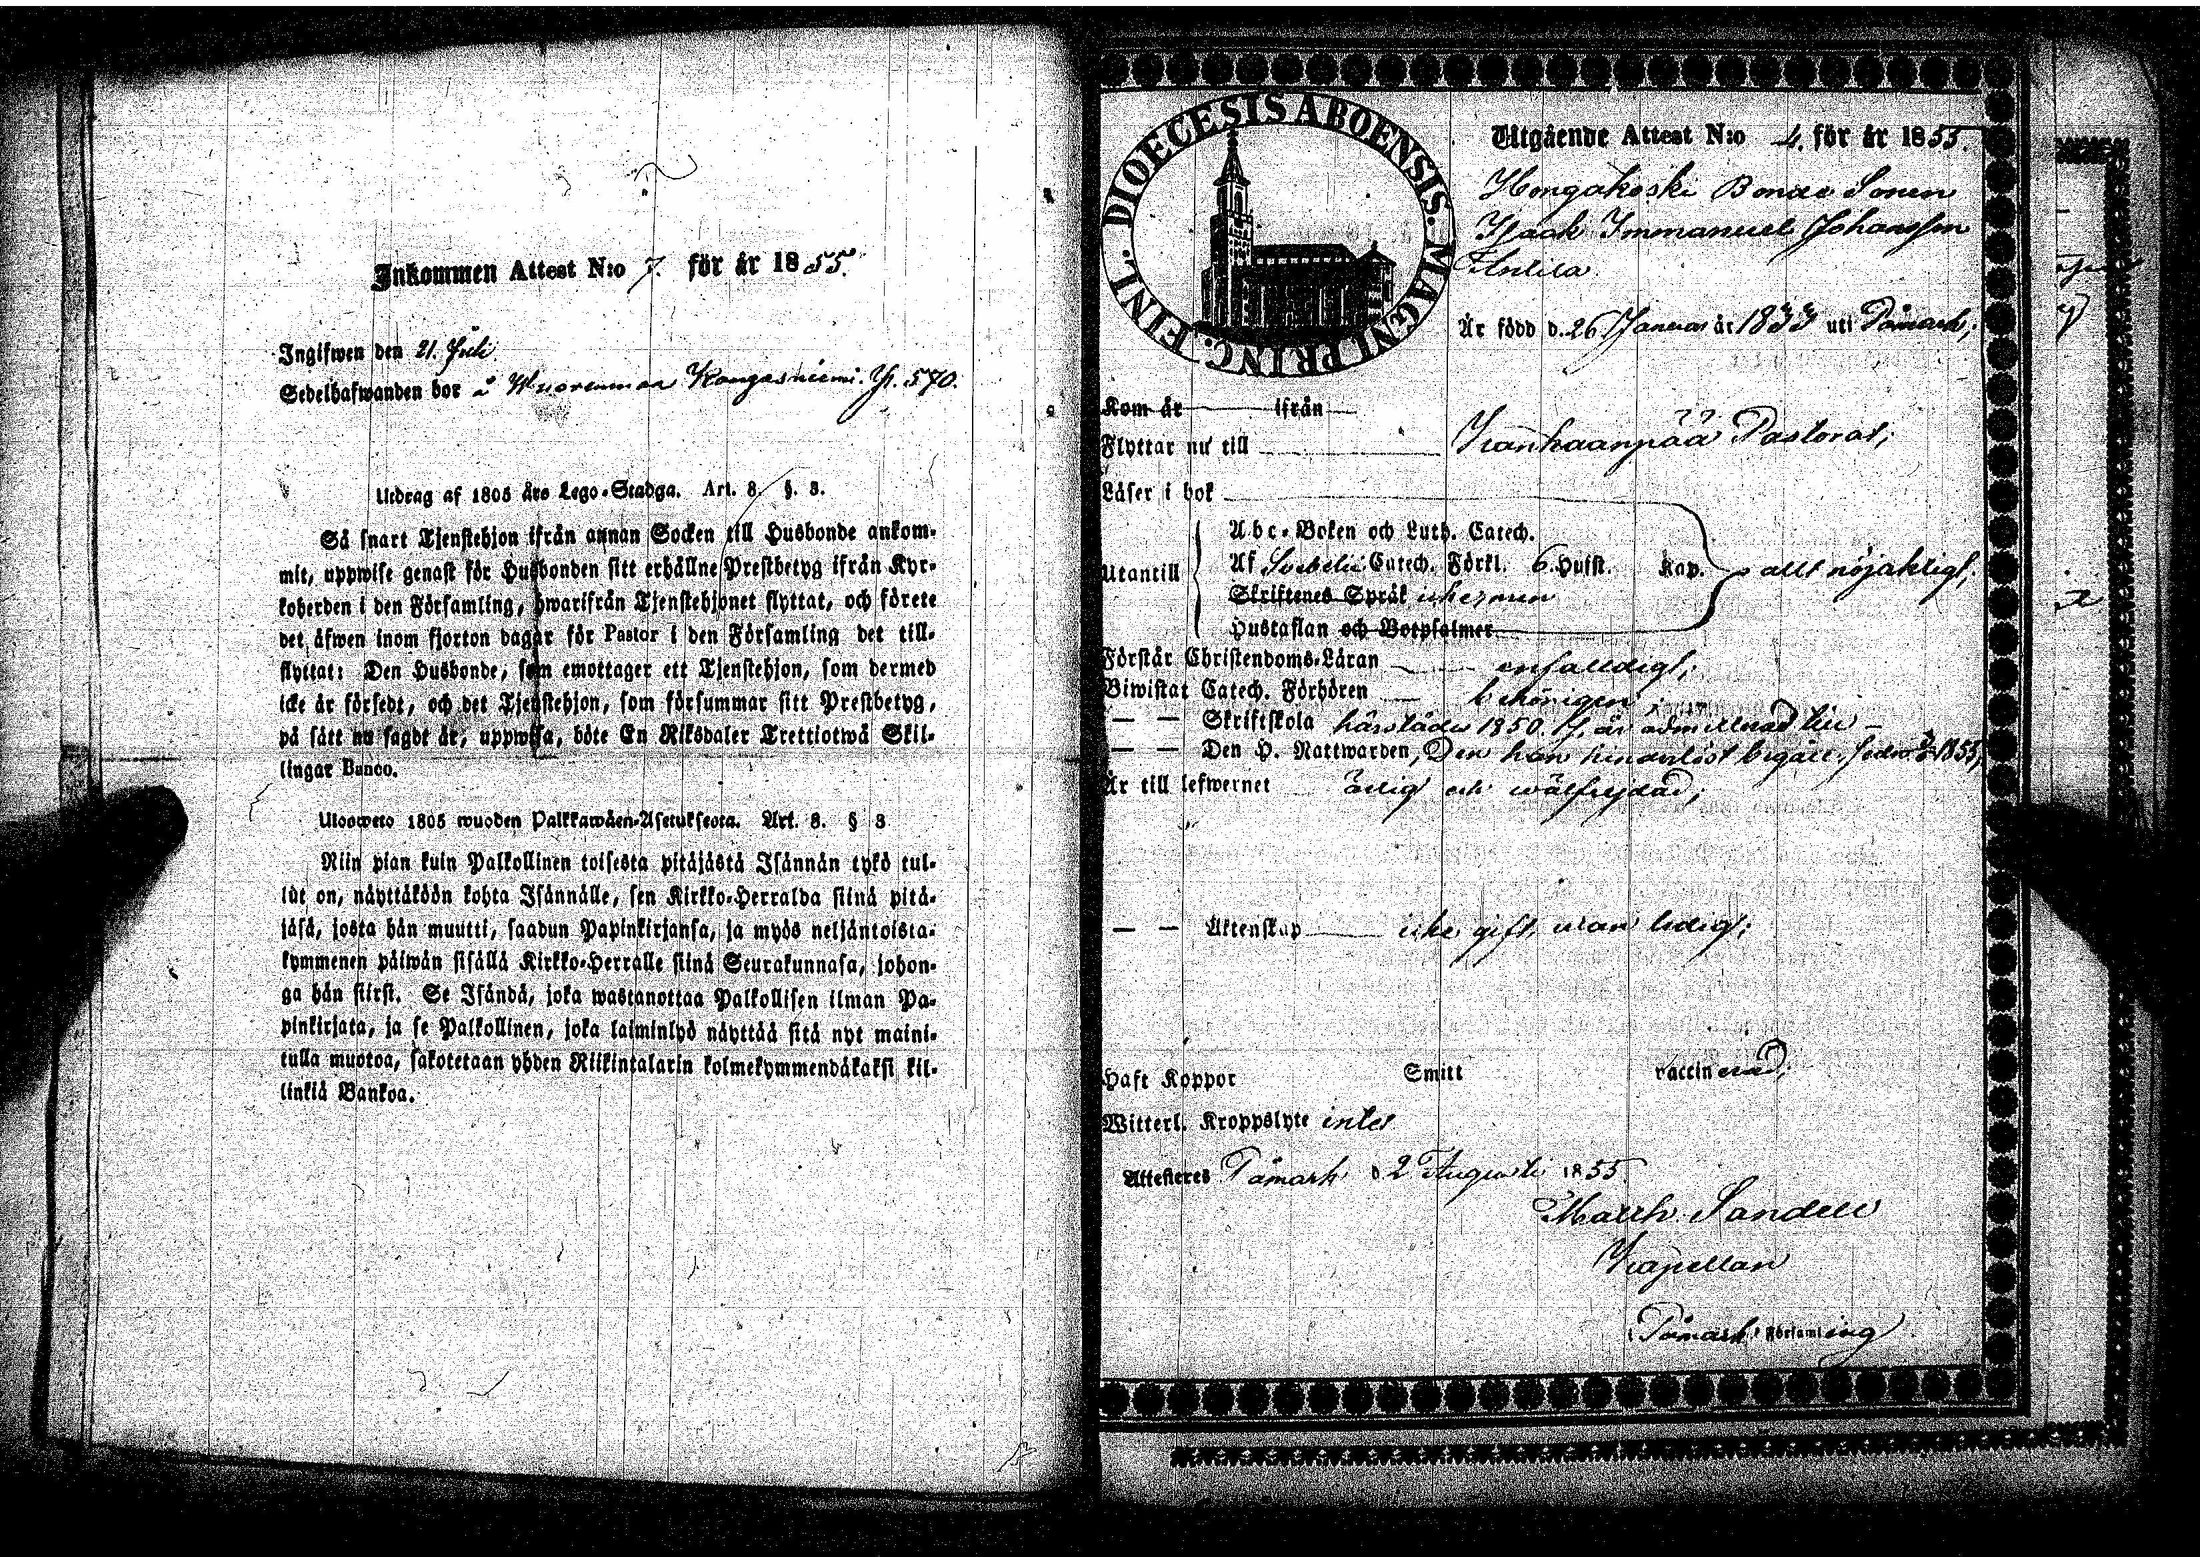 Inkommen Attest N:o 7. för år 1855.
Ingifwen den 21. Juli
Sedelhafwanden bor å Wuorenmaa Kangasniemi. P. 570.
Utdrag af 1805 års Lego-Stadga. Art. 8. §. 3.
Så snart Tjenstehjon ifrån annan Socken till Husbonde ankom-
mit, uppwise genast för Husbonden sitt erhållne Prestbetyg ifrån Kyr-
koherden i den Församling, hwarifrån Tjenstehjonet flyttat, och förete
det äfwen inom fjorton dagar för Pastor i den Församling det till-
flyttat: Den Husbonde, som emottager ett Tjenstehjon, som dermed
icke är försedt, och det Tjenstehjon, som försummar sitt Prestbetyg,
på sätt nu sagdt är, uppwisa, böte En Riksdaler Trettiotwå Skil-
lingar Banco.
Ulosweto 1805 wuoden Palkkawäen-Asetuksesta. Art. 8. § 3
Niin pian kuin Palkollinen toisesta pitäjästä Isännän tykö tul-
lut on, näyttäköön kohta Isännälle, sen Kirkko-Herralda siinä pitä-
jäsä, josta hän muutti, saadun Papinkirjansa, ja myös neljäntoista-
kymmenen päiwän sisällä Kirkko-Herralle siinä Seurakunnasa, johon-
ga hän siirst. Se Isändä, joka wastanottaa Palkollisen ilman Pa-
pinkirjata, ja se Palkollinen, joka laiminlyö näyttää sitä nyt maini-
tulla muotoa, sakotetaan yhden Riikintalarin kolmekymmendäkaksi kil-
linkiä Bankoa.
DIOECESIS ABOENSIS. MAGNI PRINC. FINL.
Utgående Attest N:o 4. för år 1855.
Hongakoski Bonde Sonen
Isaak Immanuel Johansson
Antila
Är född d. 26 Januari år 1833 uti Påmark;
Kom år ifrån
Flyttar nu till Kankaanpää Pastorat;
Läser i bok
Abc-Boken och Luth. Catech.
Utantill Af Svebelii Catech. Förkl. 6. Hufst. Kap. allt nöjaktigt;
Skriftenes Språk
Hustaflan och Botpsalmer
Förstår Christendoms-Läran enfaldigt;
Biwistat Catech. Förhören behörigen;
— — Skriftskola härstädes 1850. är admitterad till
— — Den H. Nattwarden, Den han begått 1855;
Är till lefwernet ärlig och wälfrejdad;
— — Äktenskap icke gift, utan ledig;
Haft Koppor Smitt vaccinerad;
Witterl. Kroppslyte intet
Attesteres Påmark d 2 Augusti 1855.
Matth. Sandell
Kapellan
i Påmark Församling